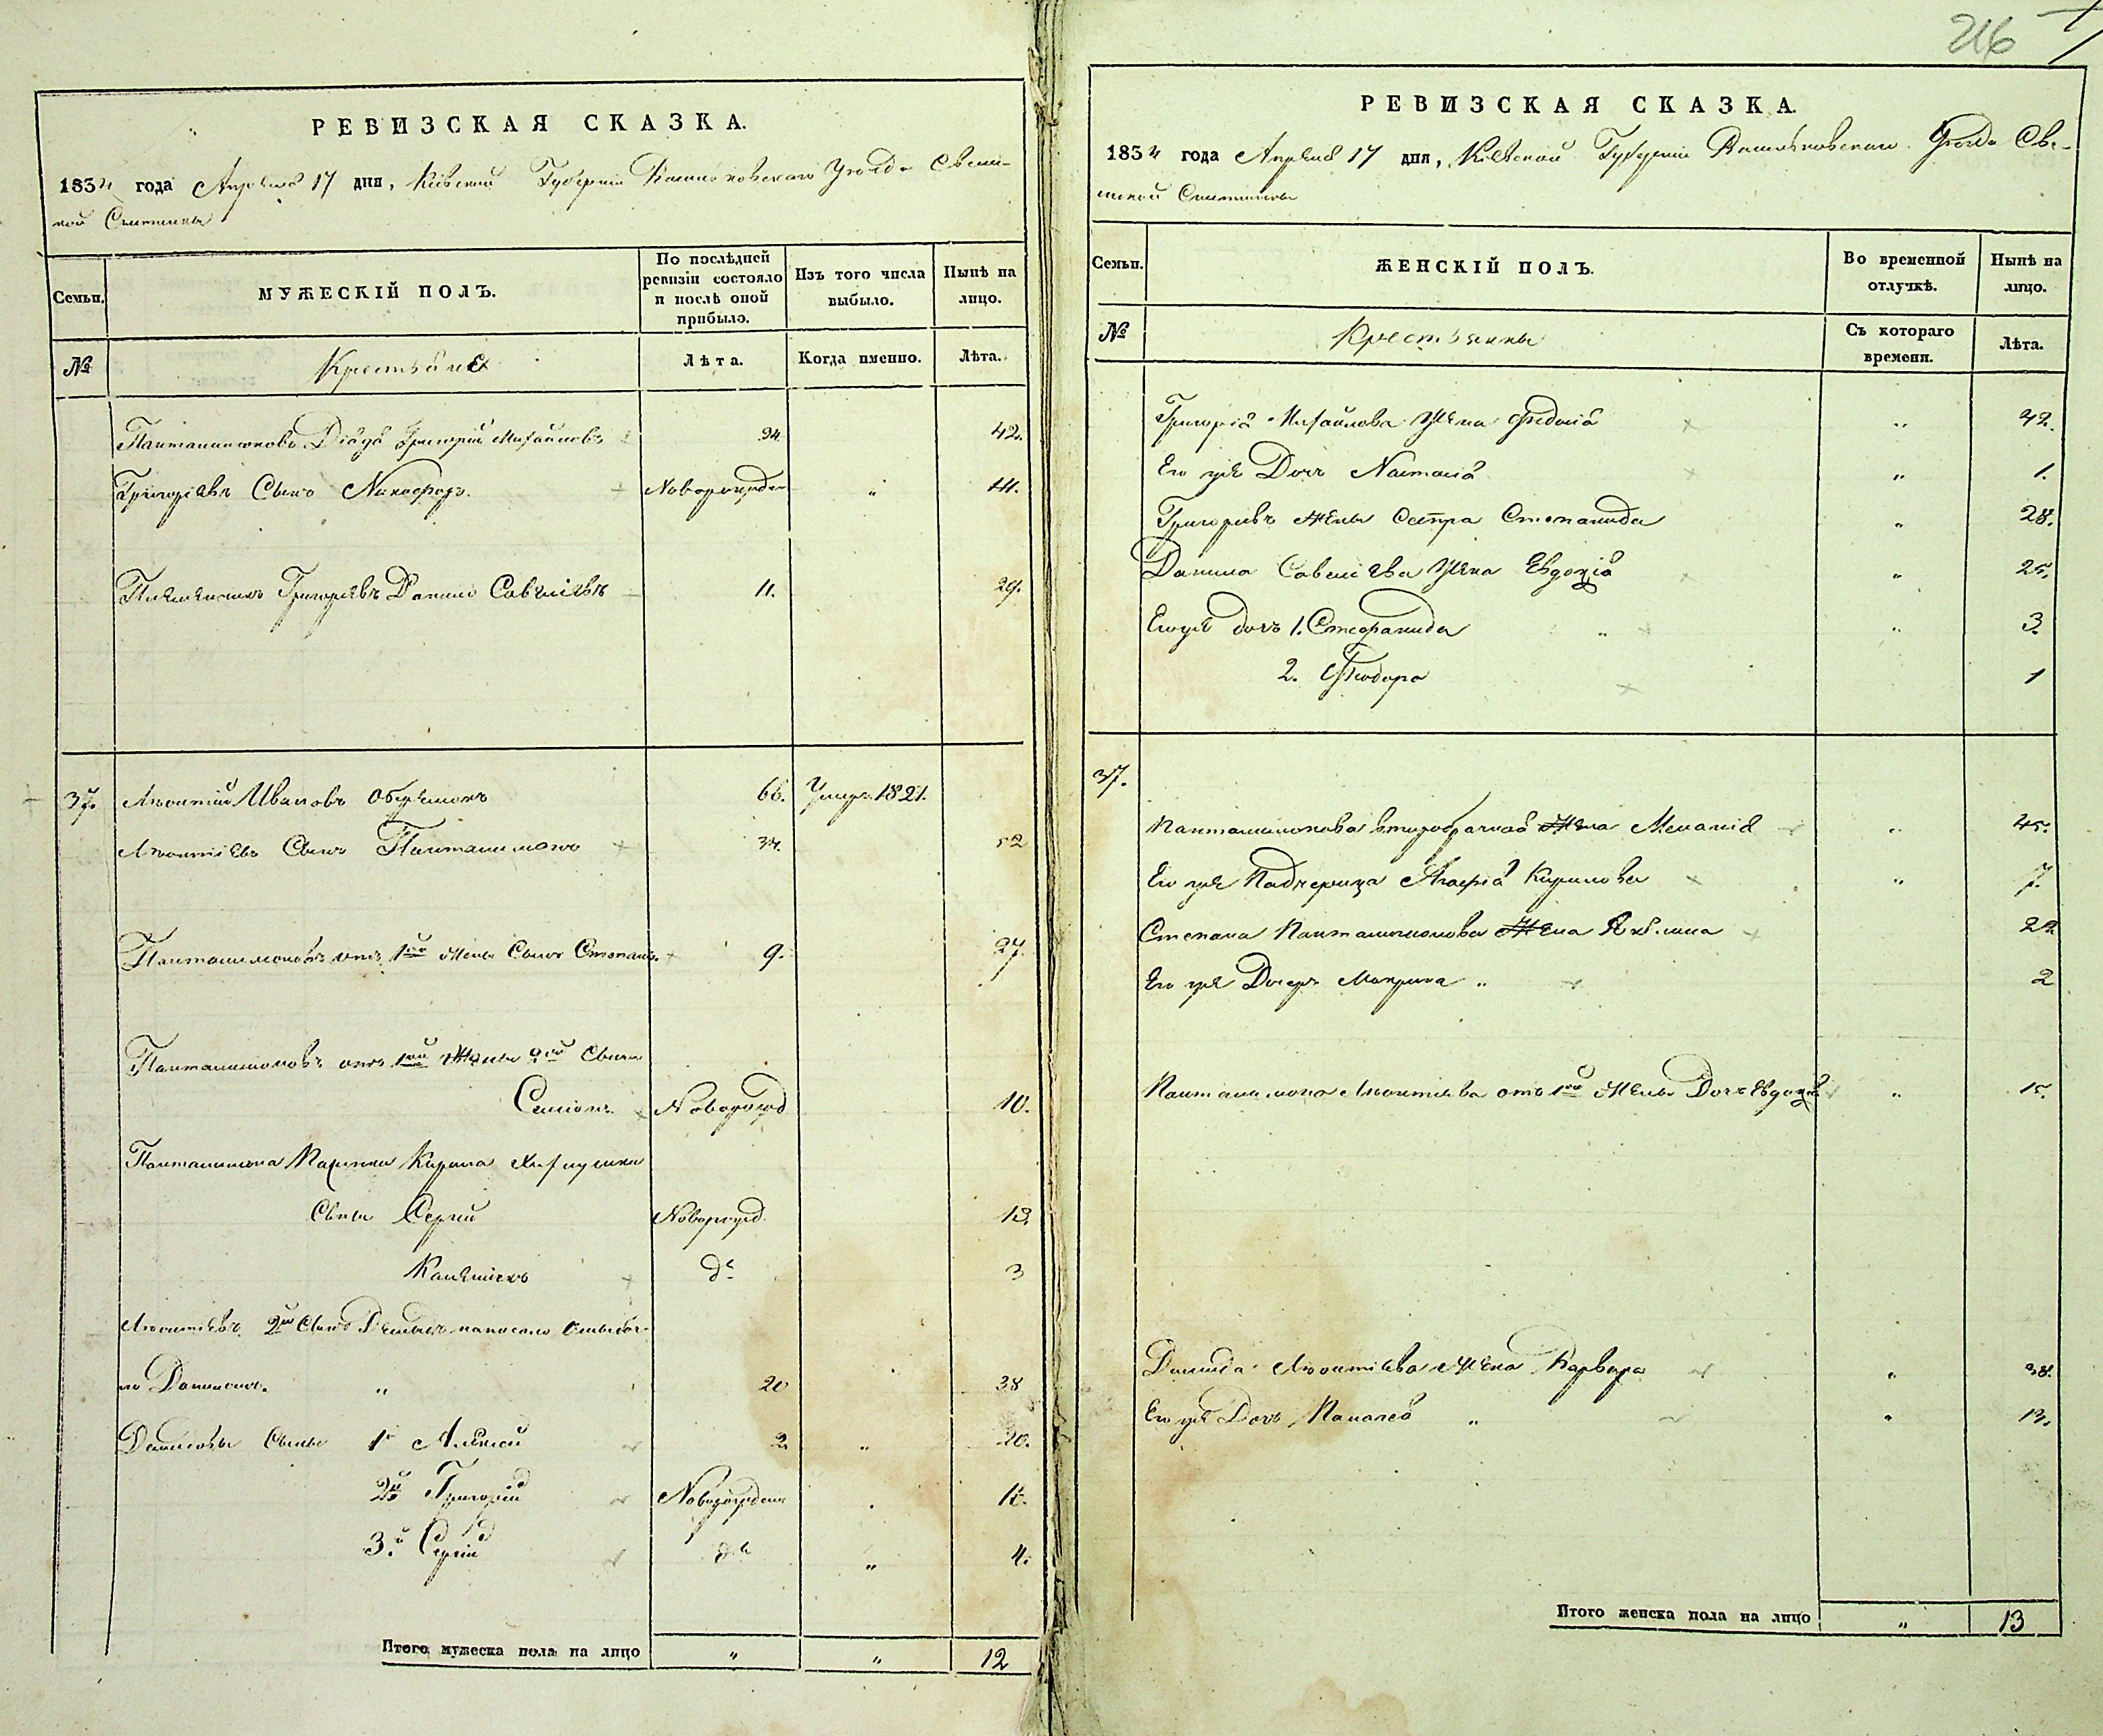 216
РЕВИЗСКАЯ СКАЗКА.
1834 года Апреля 17 дня, Кіевской Губерніи Васильковскаго Уезда
Семьи.
МУЖЕСКІЙ ПОЛЪ.
По послѣдней ревизіи состояло и послѣ оной прибыло.
Изъ того числа выбыло.
Нынѣ на лицо.
№
Крестьяне
Лѣта.
Когда именно.
Лѣта.
Григорій Михайловъ 24 42.
Григоріевъ Сынъ Никифоръ. Новорожден "
Племянникъ Григоріевъ Данило Савеліевъ 11. 29.
37. Леонтій Ивановъ 66. Умер. 1821.
Леонтіевъ Сынъ Панталимонъ 34. 52
Панталимоновъ отъ 1ой жены Сынъ Степанъ. 9. 27.
Панталимоновъ отъ 1ой Жены 2ой Сынъ
Семіонъ. Новорожд 10.
Панталимона Кирила
Сыны Сергій Новорожд. 13
д° 3
Леонтіевъ 2ой Сынъ
но " 20 38
Сыны 1й Алексей 2 " 20.
2й Григорій Новорожденъ
3й Сергій д° " 4.
Итого мужеска пола на лицо " " 12
РЕВИЗСКАЯ СКАЗКА.
1834 года Апреля 17 дня, Кіевской Губерніи Васильковскаго Уезда
Семьи.
ЖЕНСКІЙ ПОЛЪ.
Во временной отлучкѣ.
Нынѣ на лицо.
№
Крестьянки
Съ котораго времени.
Лѣта.
Григорія Михайлова Жена Федосія " 42.
Его же Дочь Настасія " 1.
Григоріевъ жены Сестра Степанида " 28.
Данила Савеліева Жена Евдокія " 25.
Его же дочь 1. Стефанида " " 3.
2. Феодора 1
37.
Панталимонова второбрачная Жена Меланія " 45.
Его же Падчерица Агафія Кирилова " 7.
Степана Панталимонова Жена
Его же Дочерь Макрина " 2
Панталимона Леонтіева отъ 1ой Жены Дочь Евдокія " 15.
Леонтіева Жена Варвара " 38.
Его же Дочь " " 13.
Итого женска пола на лицо " 13